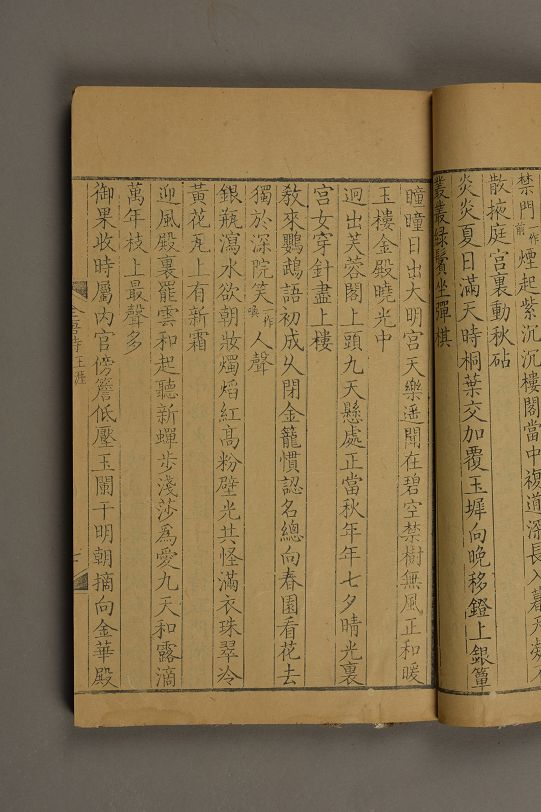 禁門一作前煙起紫沉沉樓閣當中複道深長入暮天凝不
散掖庭宮裏動秋砧
炎炎夏日滿天時桐葉交加覆玉墀向晚移鐙上銀簟
叢叢綠鬢坐彈棋
曈曈日出大明宮天樂遙聞在碧空禁樹無風正和暖
玉樓金殿曉光中
迥出芙蓉閣上頭九天懸處正當秋年年七夕晴光裏
宮女穿針盡上樓
敎來鸚鵡語初成久閉金籠慣認名總向春園看花去
獨於深院笑一作喚人聲
銀瓶瀉水欲朝妝燭焰紅高粉壁光共怪滿衣珠翠冷
黃花瓦上有新霜
迎風殿裏罷雲和起聽新蟬步淺莎爲愛九天和露滴
萬年枝上最聲多
御果收時屬內官傍簷低壓玉闌干明朝摘向金華殿
全唐詩 王涯